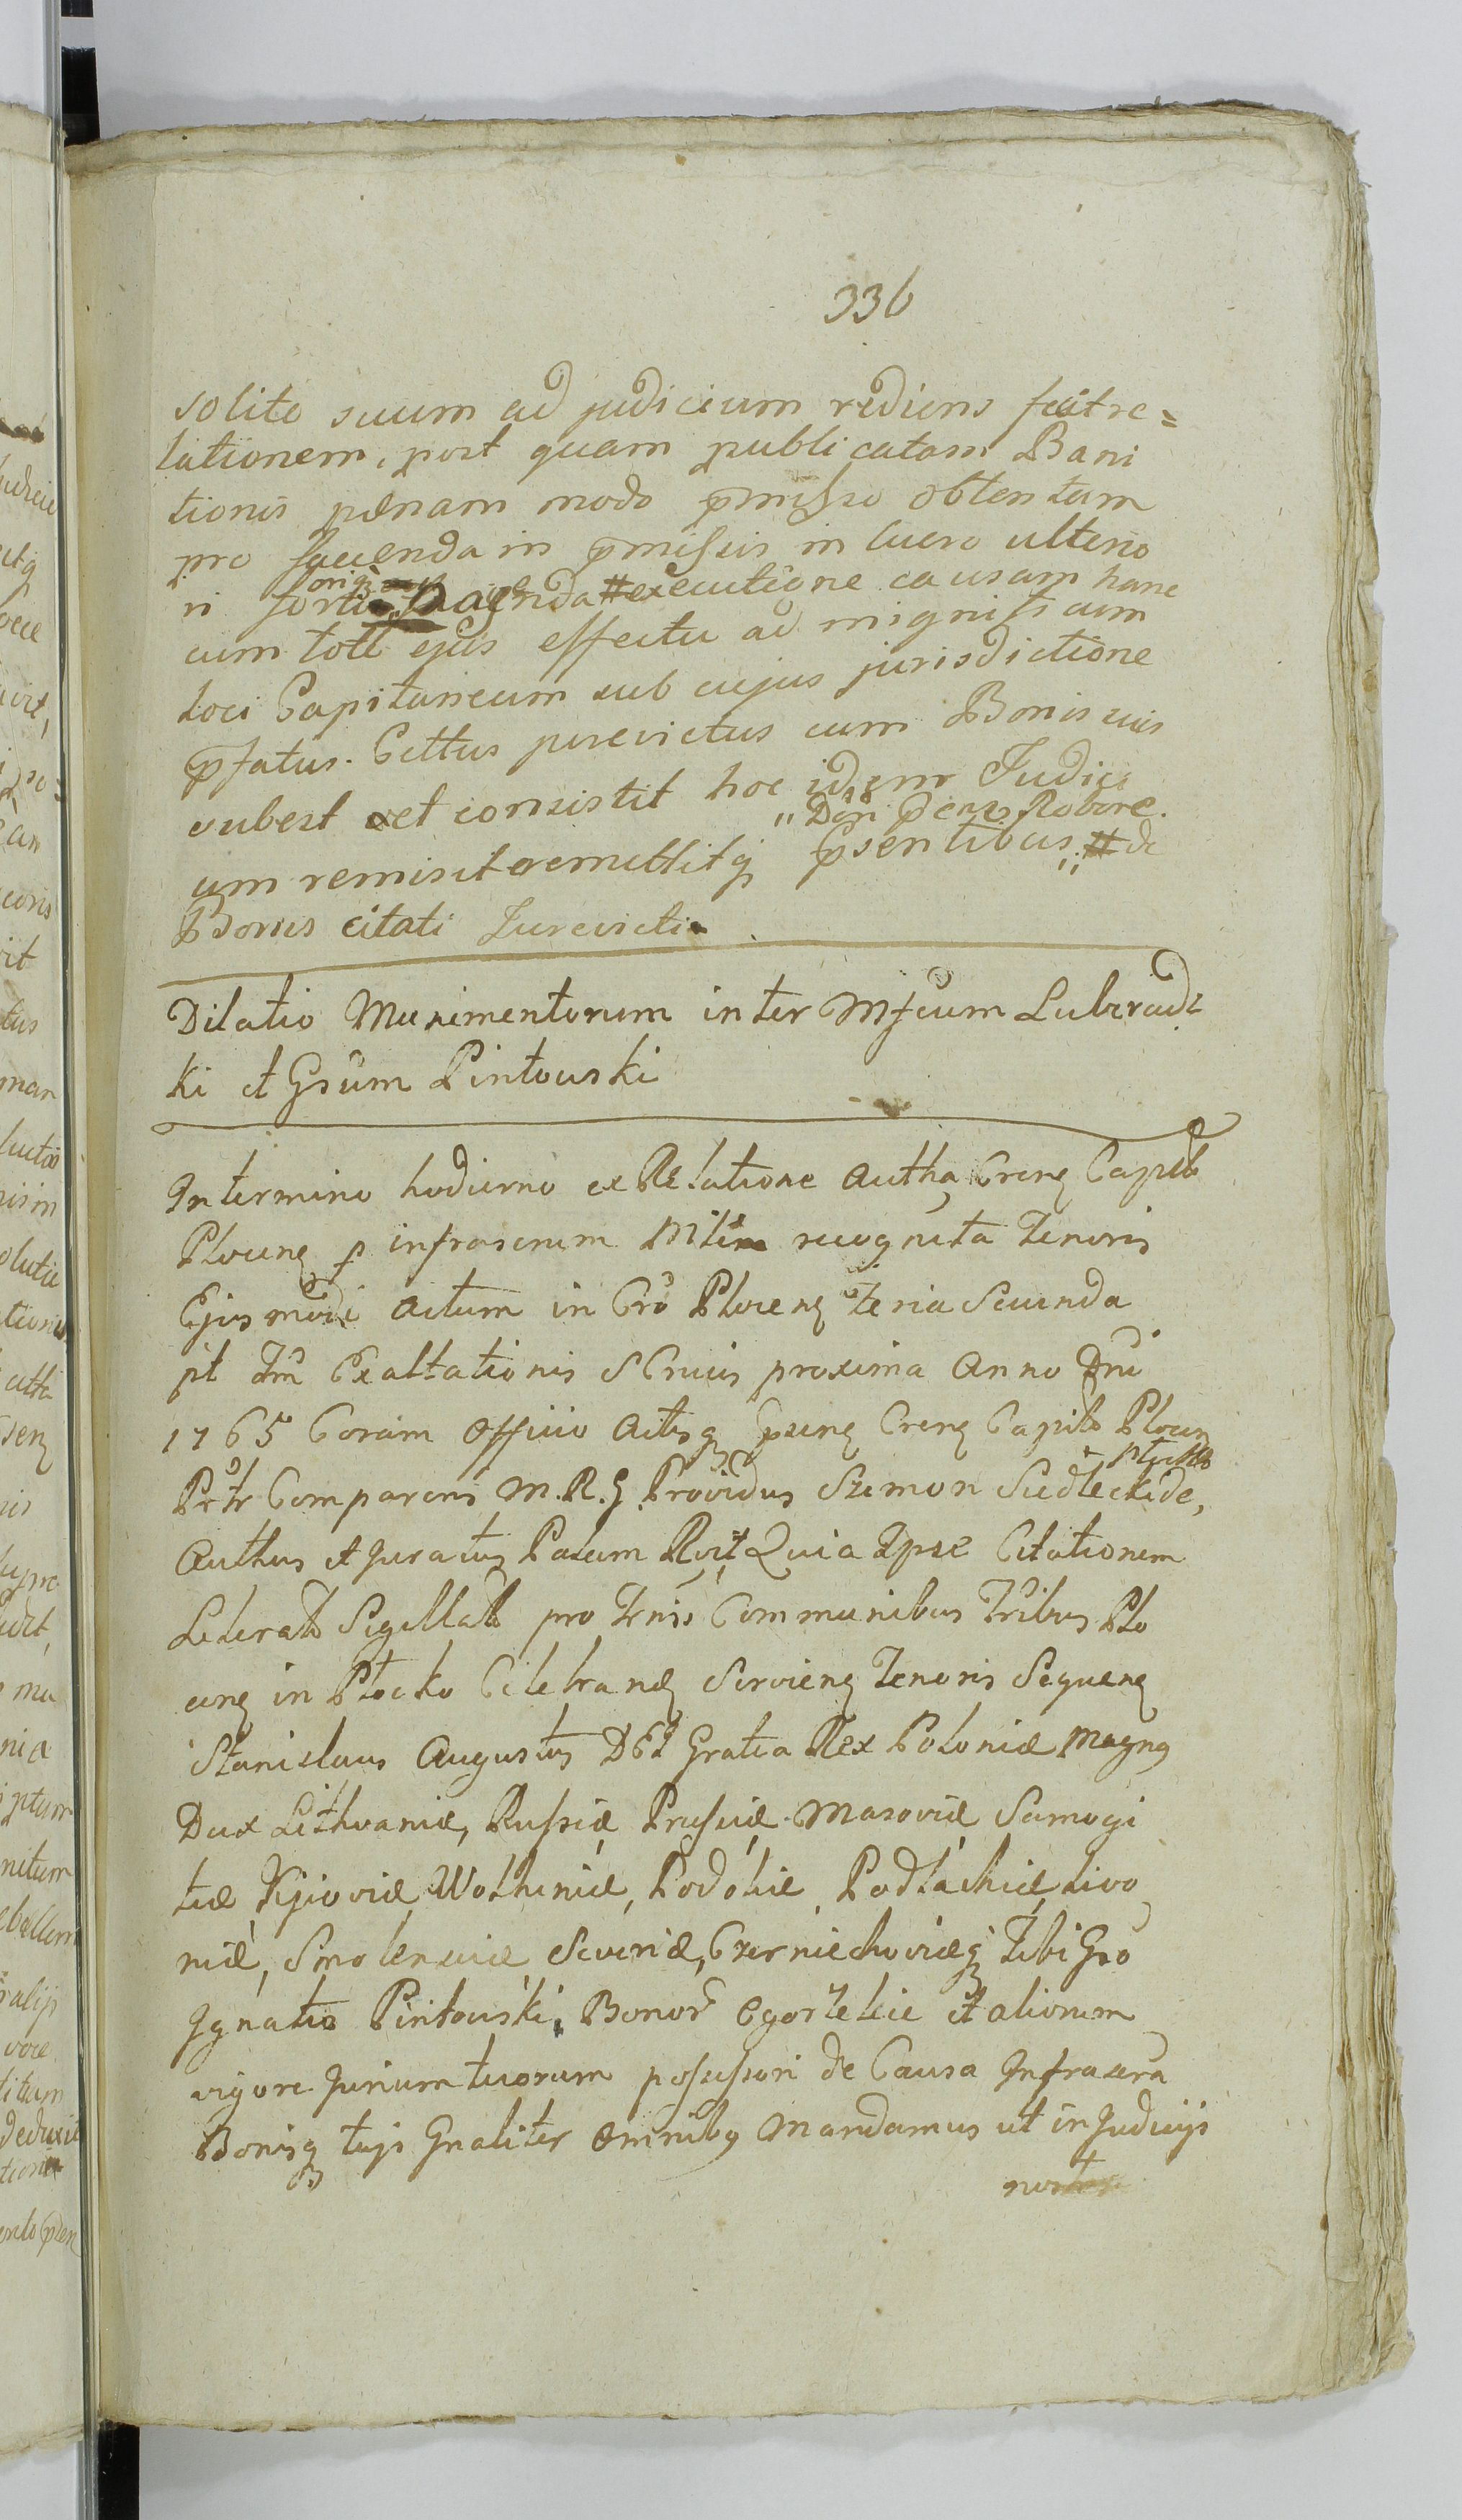 336
solito suum ad judicium rediens fecit re=
lationem, post quam publicatam Bani
tionis pænam modo pmisso obtentam
pro facienda in pmissis in lucro ulterio
ri forti agenda # executione causam hanc
cum toti ejus effectu ad mignificum
loci Capitaneum sub cujus jurisdictione
pfatus. Cittus jurevictus cum Bonis suis
subest et consistit hoc idem Judici
"Dari Robore.
um remisit remittitq psentibus # de
Bonis citati Jurevicti
Dilatio Munimentorum inter Mfcum Lubradz
ki et Gsum Pintowski
In termino hodierno ex Relatione Autha Crenꝫ Capitb
Plocenꝫ p infrascrum Mltem recognita Tenoris
Ejusmodi Actum in Cro Plocenꝫ Feria Secunda
pt Fm Exaltationis S Crucis proxima Anno Dni
1765 Coram Officio Actisq psenꝫ Crenꝫ Capitb Plocen
Prtr Comparens M. R. G. Providus Szemon Siedlecki de
Authus et Juratus Palam Rvit Quia Ipse Citationem
Literatb Sigillatb pro Trnis Communibus Tribus Plo
cenꝫ in Płocko Celebrandꝫ Servienꝫ Tenoris Sequenꝫ
Stanislaus Augustus DEI Gratia Rex Poloniæ Magnꝯ
Dux Lithvaniæ, Russiæ Prussiæ Masoviæ Samogi
tiæ Kijoviæ Wolhiniæ, Podoliæ, Podlachiæ Livo
niæ, Smolensciæ Severiæ, Czerniechoviæq Tibi Gso
Ignatio Pintowski, Bonor Ogorzelcie et aliorum
vigore Jurium tuorum possessori de Causa Infrascra
Bonisq tujs Gnaliter omnibꝯ Mandamus ut in Judicijs